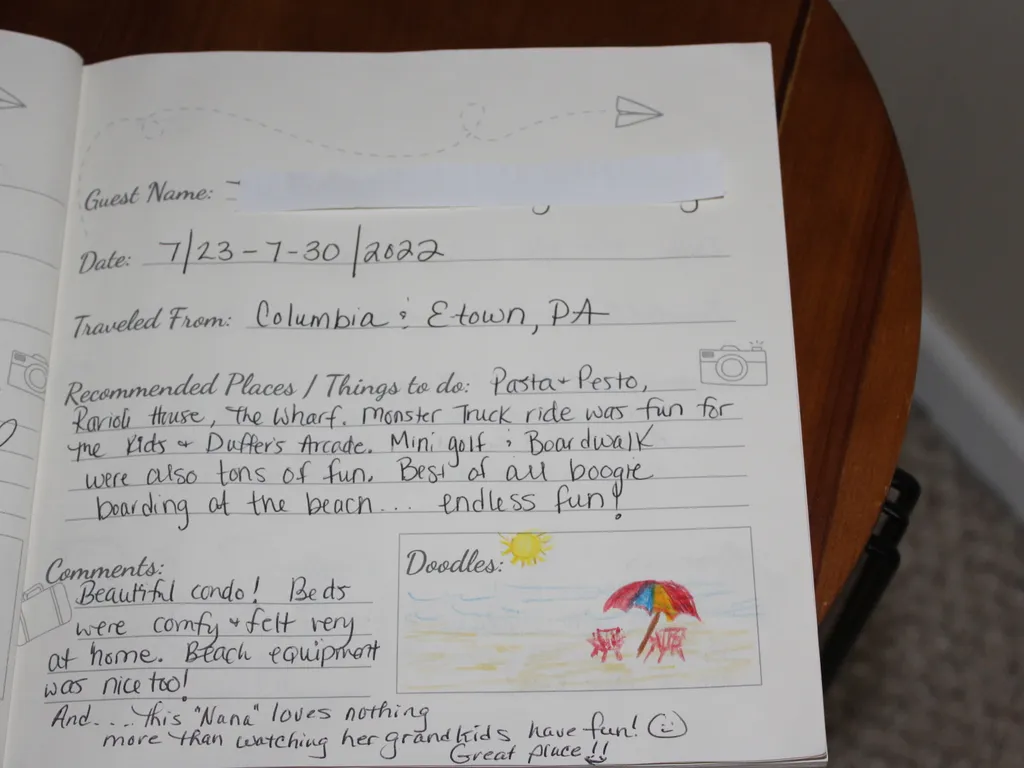 Guest Name:
Date: 7/23 - 7-30/2022
Traveled From: Columbia & Etown, PA
Recommended Places / Things to do: Pasta + Pesto,
Ravioli House, The Wharf. Monster Truck ride was fun for
the kids + Duffer's Arcade. Mini golf & Boardwalk
were also tons of fun. Best of all boogie
boarding at the beach... endless fun!
Comments:
Beautiful condo! Beds
were comfy + felt very
at home. Beach equipment
was nice too!
And.... this "Nana" loves nothing
more than watching her grandkids have fun! ☺
Great place!!
Doodles: